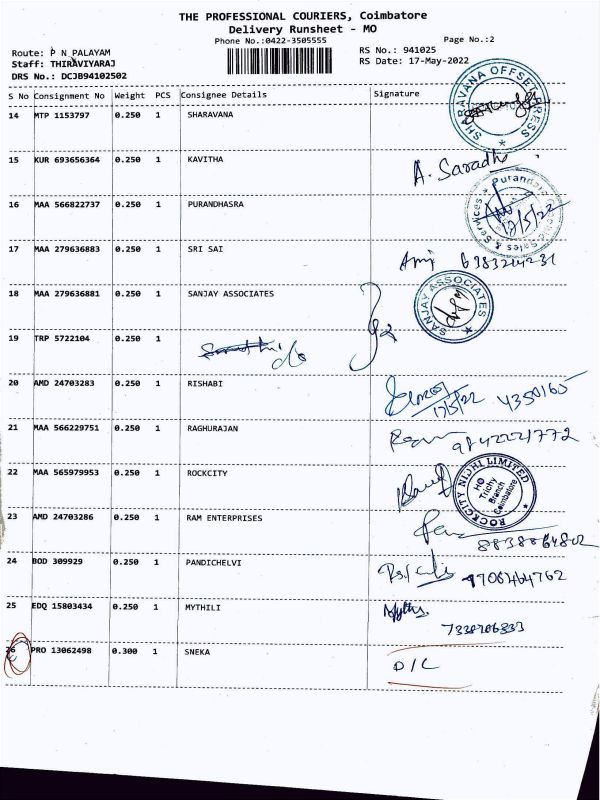 THE PROFESSIONAL COURIERS, Coimbatore
Delivery Runsheet - MO
Phone No.:0422-3505555
Page No.:2
Route: P N PALAYAM
RS No.: 941025
Staff: THIRAVIYARAJ
RS Date: 17-May-2022
DRS No.: DCJB94102502
S No Consignment No Weight PCS Consignee Details Signature
14 MTP 1153797 0.250 1 SHARAVANA
SHARAVANA OFFSET PRESS
15 KUR 693656364 0.250 1 KAVITHA
A. Saradho
16 MAA 566822737 0.250 1 PURANDHASRA
17/5/22
17 MAA 279636883 0.250 1 SRI SAI
18 MAA 279636881 0.250 1 SANJAY ASSOCIATES
SANJAY ASSOCIATES
19 TRP 5722104 0.250 1
20 AMD 24703283 0.250 1 RISHABI
17/5/22 4350165
21 MAA 566229751 0.250 1 RAGHURAJAN
9842221772
22 MAA 565979953 0.250 1 ROCKCITY
ROCKCITY NIDHI LIMITED
HO
Trichy
Branch
Coimbatore
23 AMD 24703286 0.250 1 RAM ENTERPRISES
24 BOD 309929 0.250 1 PANDICHELVI
25 EDQ 15803434 0.250 1 MYTHILI
26 PRO 13062498 0.300 1 SNEKA
D/C